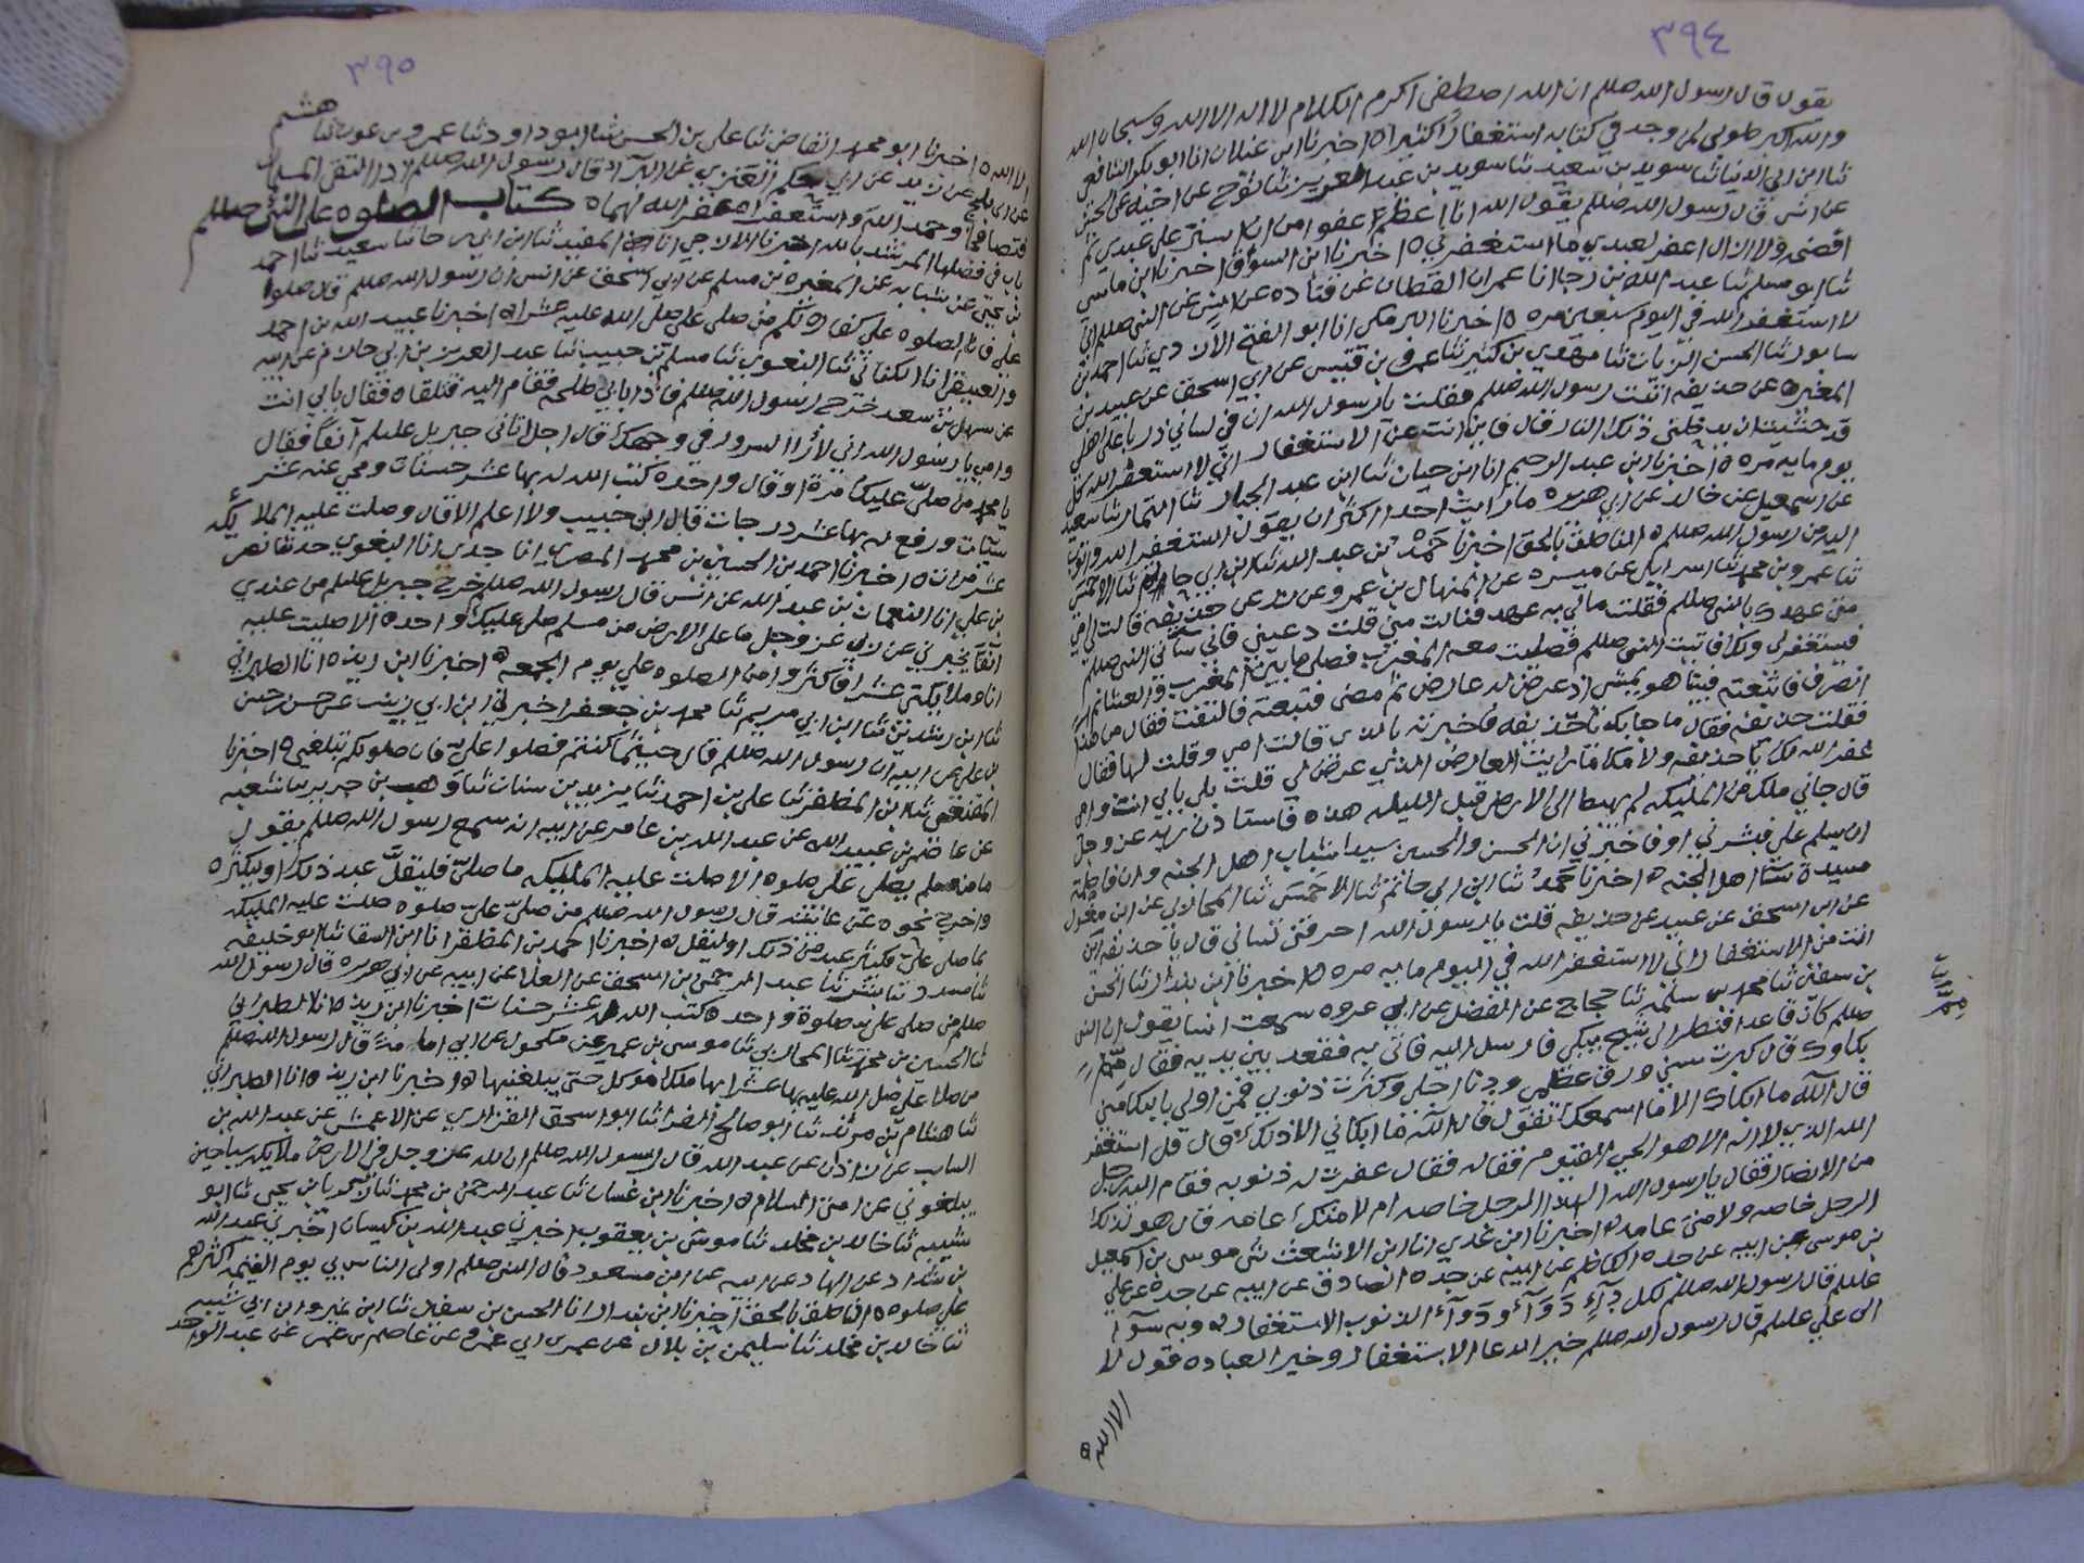 ٣٩٤
يقول قال رسول الله صللم ان الله اصطفى اكرم الكلام لا اله الا الله وسبحان الله
والله اكبر طوبى لمن وجد في كتابه استغفارا كثيرا ه اخبرنا ابن غيلان انا ابو بكر الشافعي
ثنا ابن ابي الدنيا ثنا سويد بن سعيد ثنا سويد بن عبد العزيز ثنا نوح عن اخيه عن الحسن
عن انس قال رسول الله صللم يقول الله انا اعظم عفوا من ان استر على عبدي ثم
افضحه ولا ازال اغفر لعبدي ما استغفرني ه اخبرنا ابن السواق اخبرنا ابن ماسي
ثنا ابو مسلم ثنا عبد الله بن رجا انا عمران القطان عن قتاده عن انس عن النبي صللم اني
لا استغفر الله في اليوم سبعين مره ه اخبرنا البرمكي انا ابو الفتح الازدي ثنا احمد بن
سابور ثنا الحسن الزيات ثنا مهدي بن كثير ثنا عمرو بن قيس عن ابي اسحق عن عبيد بن
المغيره عن حذيفه اتيت رسول الله صللم فقلت يا رسول الله ان في لساني ذربا على اهلي
قد خشيت ان يدخلني ذلك النار قال فاين انت عن الاستغفار اني لا استغفر الله كل
يوم مايه مره ه اخبرنا ابن عبد الرحيم انا ابن حيان ثنا ابن عبد الجبار ثنا التمار ثنا سعيد
عن اسمعيل عن خالد عن ابي هريره ما رايت احدا اكثر ان يقول استغفر الله واتوب
اليه من رسول الله صللم ه الناطق بالحق اخبرنا حمد بن عبد الله ثنا ابن ابي حاتم ثنا الاحمسي
ثنا عمرو بن محمد ثنا اسرايل عن ميسره عن المنهال بن عمرو عن زر عن حذيفه قالت لي امي
متى عهدك بالنبي صللم فقلت مالي به عهد فنالت مني قلت دعيني فاني ساتي النبي صللم
فيستغفر لي ولك فاتيت النبي صللم فصليت معه المغرب فصلى ما بين المغرب والعشا ثم
انصرف فاتبعته فبينا هو يمشي اذ عرض له عارض ثم مضى فتبعته فالتفت فقال من هذا
فقلت حذيفه فقال ما جا بك يا حذيفه فاخبرته بالذي قالت امي وقلت لها فقال
غفر الله لك يا حذيفه ولامك اما رايت العارض الذي عرض لي قلت بلى بابي انت وامي
قال جاني ملك من المليكه لم يهبط الى الارض قبل الليله هذه فاستاذن ربه عز وجل
ان يسلم علي فبشرني او فاخبرني ان الحسن والحسين سيدا شباب اهل الجنه وان فاطمة
سيدة نسا اهل الجنه ه اخبرنا حمد ثنا ابن ابي حاتم ثنا الاحمسي ثنا المحاربي عن ابن مغول
عن ابي اسحق عن عبيد عن حذيفه قلت يا رسول الله احرقني لساني قال يا حذيفه اين
انت من الاستغفار اني لا استغفر الله في اليوم مايه مره ه اخبرنا ابن بندار ثنا الحسن
بن سفين ثنا محمد بن سلمه ثنا حجاج عن الفضل عن ابي عروه سمعت انسا يقول ان النبي
صللم كان قاعدا فنظر الى شيخ يبكي فارسل اليه فاتي به فقعد بين يديه فقال مم
بكاوك قال كبرت سني ورق عظمي ودنا اجلي وكثرت ذنوبي فمن اولى بالبكا مني
قال الله ما ابكاك الا ما اسمعك تقول قال الله ما ابكاني الا ذلك قال قل استغفر
الله الذي لا اله الا هو الحي القيوم فقاله فقال غفرت له ذنوبه فقام اليه رجل
من الانصار فقال يا رسول الله الهذا الرجل خاصه ام لامتك عامه قال هو لذلك
الرجل خاصه ولامتي عامه ه اخبرنا ابن عدي انا ابن الاشعث ثني موسى بن اسمعيل
بن موسى عن ابيه عن جده الكاظم عن ابيه عن جده الصادق عن ابيه عن جده عن علي
عليلم قال رسول الله صللم لكل داء دواء ودواء الذنوب الاستغفار ه وبه
الى علي عليلم قال رسول الله صللم خير الدعا الاستغفار وخير العباده قول لا
الا الله
٣٩٥
الا الله ه اخبرنا ابو محمد القاض ثنا علي بن الحسن ثنا ابو داود ثنا عمرو بن عون ثنا هشيم
عن ابي بلج عن زيد عن ابي الحكم العنزي عن البرا قال رسول الله صللم اذا التقى المسلمان
فتصافحا وحمدا الله واستغفراه غفر الله لهما ه كتاب الصلوه على النبي صللم
باب في فضلها المرشد بالله اخبرنا الازجي انا المفيد ثنا ابن ثنا سعيد ثنا احمد
بن يحيى عن شبابه عن المغيره بن مسلم عن ابي اسحق عن انس ان رسول الله صللم قال صلوا
علي فان الصلوه علي كفارة لكم من صلى علي صلى الله عليه عشرا ه اخبرنا عبيد الله بن احمد
والعتيقي انا الكتاني ثنا البغوي ثنا مسلم بن حبيب ثنا عبد العزيز بن ابي حازم عن ابيه
عن سهل بن سعد خرج رسول الله صللم فاذا بابي طلحه فقام اليه فتلقاه فقال بابي انت
وامي يا رسول الله اني لارا السرور في وجهك قال اجل اتاني جبريل عليلم آنفا فقال
يا محمد من صلى عليك مرة او قال واحده كتب الله له بها عشر حسنات ومحي عنه عشر
سيئات ورفع له بها عشر درجات قال ابن حبيب ولا اعلم الا قال وصلت عليه الملائكه
عشر مرات ه اخبرنا احمد بن الحسين بن محمد المصري انا جدي انا البغوي حدثنا نصر
بن علي انا النعمان بن عبد الله عن انس قال رسول الله صللم خرج جبريل عليلم من عندي
آنفا يخبرني عن ربي عز وجل ما على الارض من مسلم صلى عليك واحدة الا صليت عليه
انا وملايكتي عشرا فاكثروا من الصلوه علي يوم الجمعه ه اخبرنا ابن ريذه انا الطبراني
ثنا ابن رشدين ثنا ابن ابي مريم ثنا محمد بن جعفر اخبرني ابن ابي زينب عن حسن بن حسن
بن علي عن ابيه ان رسول الله صللم قال حيثما كنتم فصلوا علي فان صلوتكم تبلغني ه اخبرنا
المقنعي ثنا ابن المظفر ثنا علي بن احمد ثنا يزيد بن سنان ثنا وهب بن جرير ثنا شعبه
عن عاصم بن عبيد الله عن عبد الله بن عامر عن ابيه انه سمع رسول الله صللم يقول
ما من مسلم يصلي علي صلوه الا صلت عليه المليكه ما صلى فليقل عبد ذلك او ليكثره
واخرج نحوه عن عائشه قال رسول الله صللم من صلى علي صلوه صلت عليه المليكه
ما صلى علي فليكثر عبد من ذلك او ليقل ه اخبرنا احمد بن المظفر انا ابن السقا ثنا ابو خليفه
ثنا مسدد ثنا بشر ثنا عبد الرحمن بن اسحق عن العلا عن ابيه عن ابي هريره قال رسول الله
صللم من صلى علي صلوة واحده كتب الله له عشر حسنات اخبرنا ابن ريذه انا الطبراني
ثنا الحسين بن محمد ثنا المحاربي ثنا موسى بن عمير عن مكحول عن ابي امامه قال رسول الله صللم
من صلا علي صلى الله عليه بها عشرا بها ملك موكل حتى يبلغنيها ه اخبرنا ابن ريذه انا الطبراني
ثنا هشام بن مرثد ثنا ابو صالح الفرا ثنا ابو اسحق الفزاري عن الاعمش عن عبد الله بن
السايب عن زاذان عن عبد الله قال رسول الله صللم ان لله عز وجل في الارض ملايكه سياحين
يبلغوني عن امتي السلام ه اخبرنا ابن غسان ثنا عبد الرحمن بن محمد ثنا زكريا بن يحيى ثنا ابو
شيبه ثنا خالد بن مخلد ثنا موسى بن يعقوب اخبرني عبد الله بن كيسان اخبرني عبد الله
بن شداد عن الهاد عن ابيه عن ابن مسعود قال النبي صللم اولى الناس بي يوم القيمه اكثرهم
علي صلوه ه الناطق بالحق اخبرنا ابن بندار انا الحسن بن سفين ثنا ابن نمير وابن ابي شيبه
ثنا خالد بن مخلد ثنا سليمن بن بلال عن عمرو بن ابي عمرو عن عاصم بن عمر عن عبد الواحد